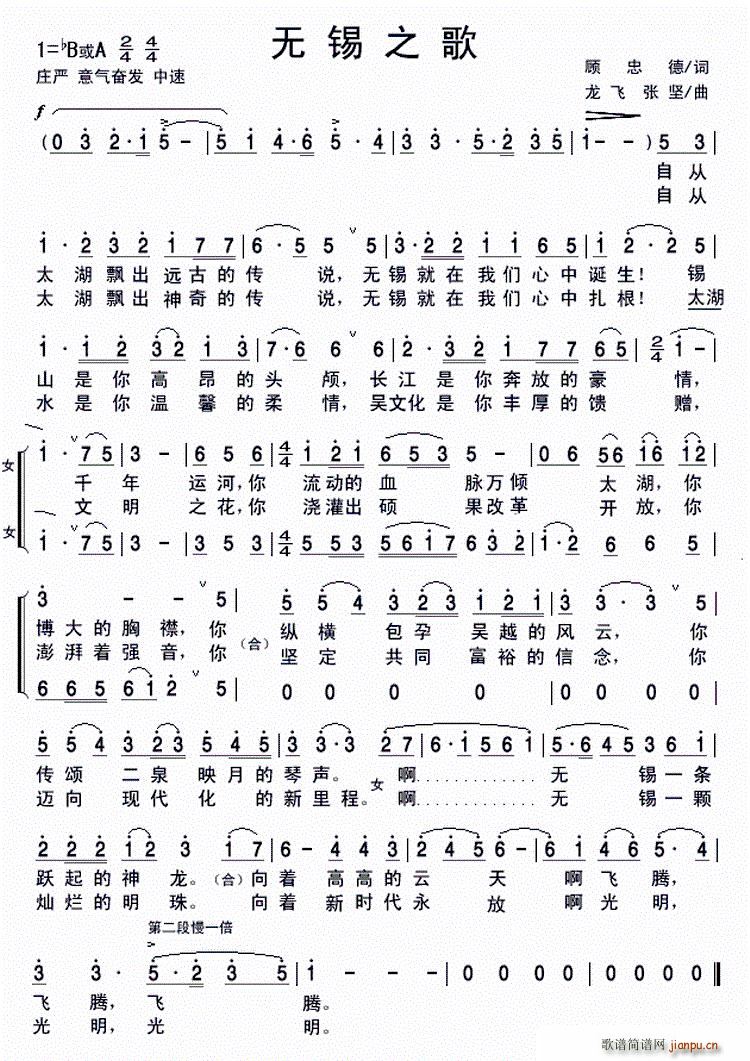 无锡之歌
1=♭B或A 2/4 4/4
顾忠德/词
庄严 意气奋发 中速
龙飞 张坚/曲
f
(0 3 2·1 5 - | 5 1 4·6 5·4 | 3·3 5·2 35 | 1 - - ) 5 3 |
自从
自从
1·2 32 1 77 | 6·5 5 5 | 3·22 11 65 | 1·2 2 5 |
太湖飘出远古的传说，无锡就在我们心中诞生！锡
太湖飘出神奇的传说，无锡就在我们心中扎根！太湖
1·12 32 13 | 7·6 6 6 | 2·33 1 77 65 | 2/4 1 - |
山是你高昂的头颅，长江是你奔放的豪情，
水是你温馨的柔情，吴文化是你丰厚的馈赠，
女 1·75 | 3 - | 656 | 4/4 1 121 6535 - | 06 56 16 12 |
千年运河，你流动的血脉万倾太湖，你
文明之花，你浇灌出硕果改革开放，你
女 1·75 | 3 - | 353 | 4/4 3 533 5617 632 | 1·2 6 6 5 |
3 - - 5 | 5 54 323 121 | 3·3 5 |
博大的胸襟，你(合)纵横包孕吴越的风云，你
澎湃着强音，你 坚定共同富裕的信念，你
6 665 61 2 5 | 0 0 0 0 | 0 0 0 0 |
5 54 323 545 | 3 3·3 27 | 6·1 561 | 5·645 36 1 |
传颂二泉映月的琴声。女啊…………无锡一条
迈向现代化的新里程。啊…………无锡一颗
2 22 12 3 17 | 6 - 4 43 | 2456 - | 61 46 5·4 |
跃起的神龙。(合)向着高高的云天啊飞腾，
灿烂的明珠。向着新时代永放啊光明，
第二段慢一倍
3 3·5·2 3 5 | 1 - - - | 0 0 0 0 | 0 0 0 0 ‖
飞腾，飞腾。
光明，光明。
歌谱简谱网
jianpu.cn